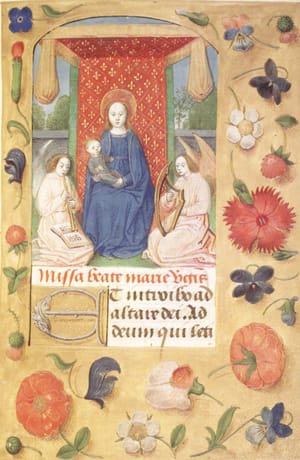 Missa beate marie Virgīs
Et introibo ad
altare dei. Ad
deum qui leti